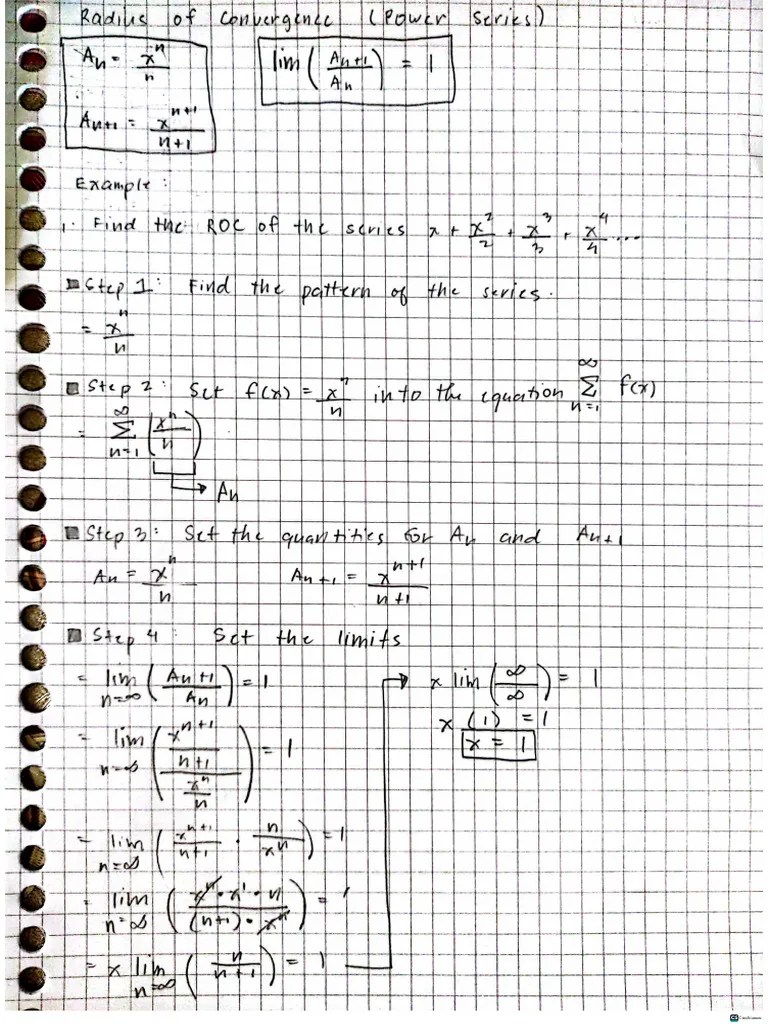 Radius of Convergence (Power Series)
An = x^n/n
lim (An+1/An) = 1
An+1 = x^(n+1)/n+1
Example:
1. Find the ROC of the series x + x^2/2 + x^3/3 + x^4/4 ...
Step 1: Find the pattern of the series.
= x^n/n
Step 2: Set f(x) = x^n/n into the equation ∞ Σ n=1 f(x)
= ∞ Σ n=1 (x^n/n)
An
Step 3: Set the quantities for An and An+1
An = x^n/n
An+1 = x^(n+1)/n+1
Step 4: Set the limits
= lim n=∞ (An+1/An) = 1
= lim n=∞ ((x^(n+1)/n+1)/(x^n/n)) = 1
= lim n=∞ (x^(n+1)/n+1 · n/x^n) = 1
= lim n=∞ (x^n · x^1 · n/(n+1) · x^n) = 1
= x lim n=∞ (n/n+1) = 1
x lim (∞/∞) = 1
x (1) = 1
x = 1